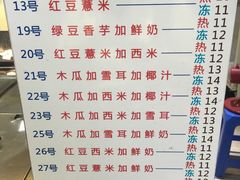 18号 红豆薏米 冻 11
19号 绿豆香芋加鲜奶 热 11 冻 12
20号 红豆薏米加西米 热 11 冻 12
21号 木瓜加雪耳加椰汁 热 13 冻 14
22号 木瓜加西米加椰汁 热 13 冻 14
23号 木瓜加雪耳加鲜奶 热 13 冻 14
25号 木瓜加西米加鲜奶 热 13 冻 14
26号 红豆西米加鲜奶 热 11 冻 12
27号 红豆薏米加鲜奶 热 11 冻 12